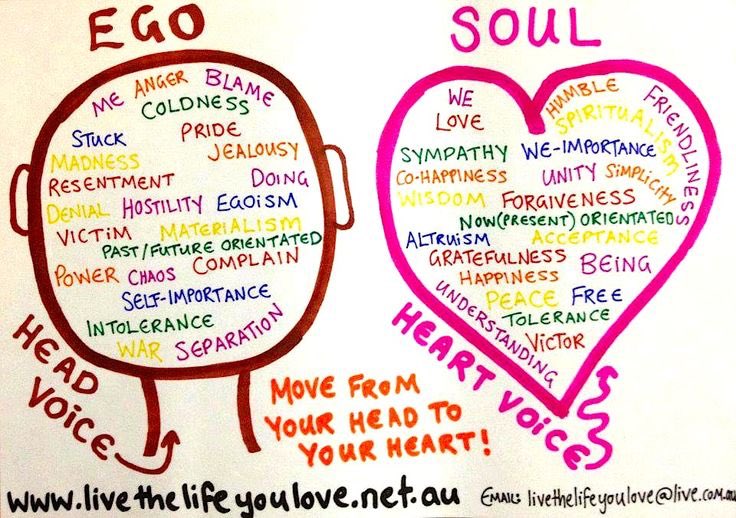 EGO
ME ANGER BLAME
COLDNESS
STUCK PRIDE
MADNESS JEALOUSY
RESENTMENT DOING
DENIAL HOSTILITY EGOISM
VICTIM MATERIALISM
PAST/FUTURE ORIENTATED
POWER CHAOS COMPLAIN
SELF-IMPORTANCE
INTOLERANCE
WAR SEPARATION
HEAD
VOICE
SOUL
WE HUMBLE FRIENDLINESS
LOVE SPIRITUALISM
SYMPATHY WE-IMPORTANCE
CO-HAPPINESS UNITY SIMPLICITY
WISDOM FORGIVENESS
NOW(PRESENT) ORIENTATED
ALTRUISM ACCEPTANCE
GRATEFULNESS BEING
HAPPINESS
UNDERSTANDING PEACE FREE
TOLERANCE
VICTOR
HEART VOICE
MOVE FROM
YOUR HEAD TO
YOUR HEART!
www.livethelifeyoulove.net.au EMAIL: livethelifeyoulove@live.com.au